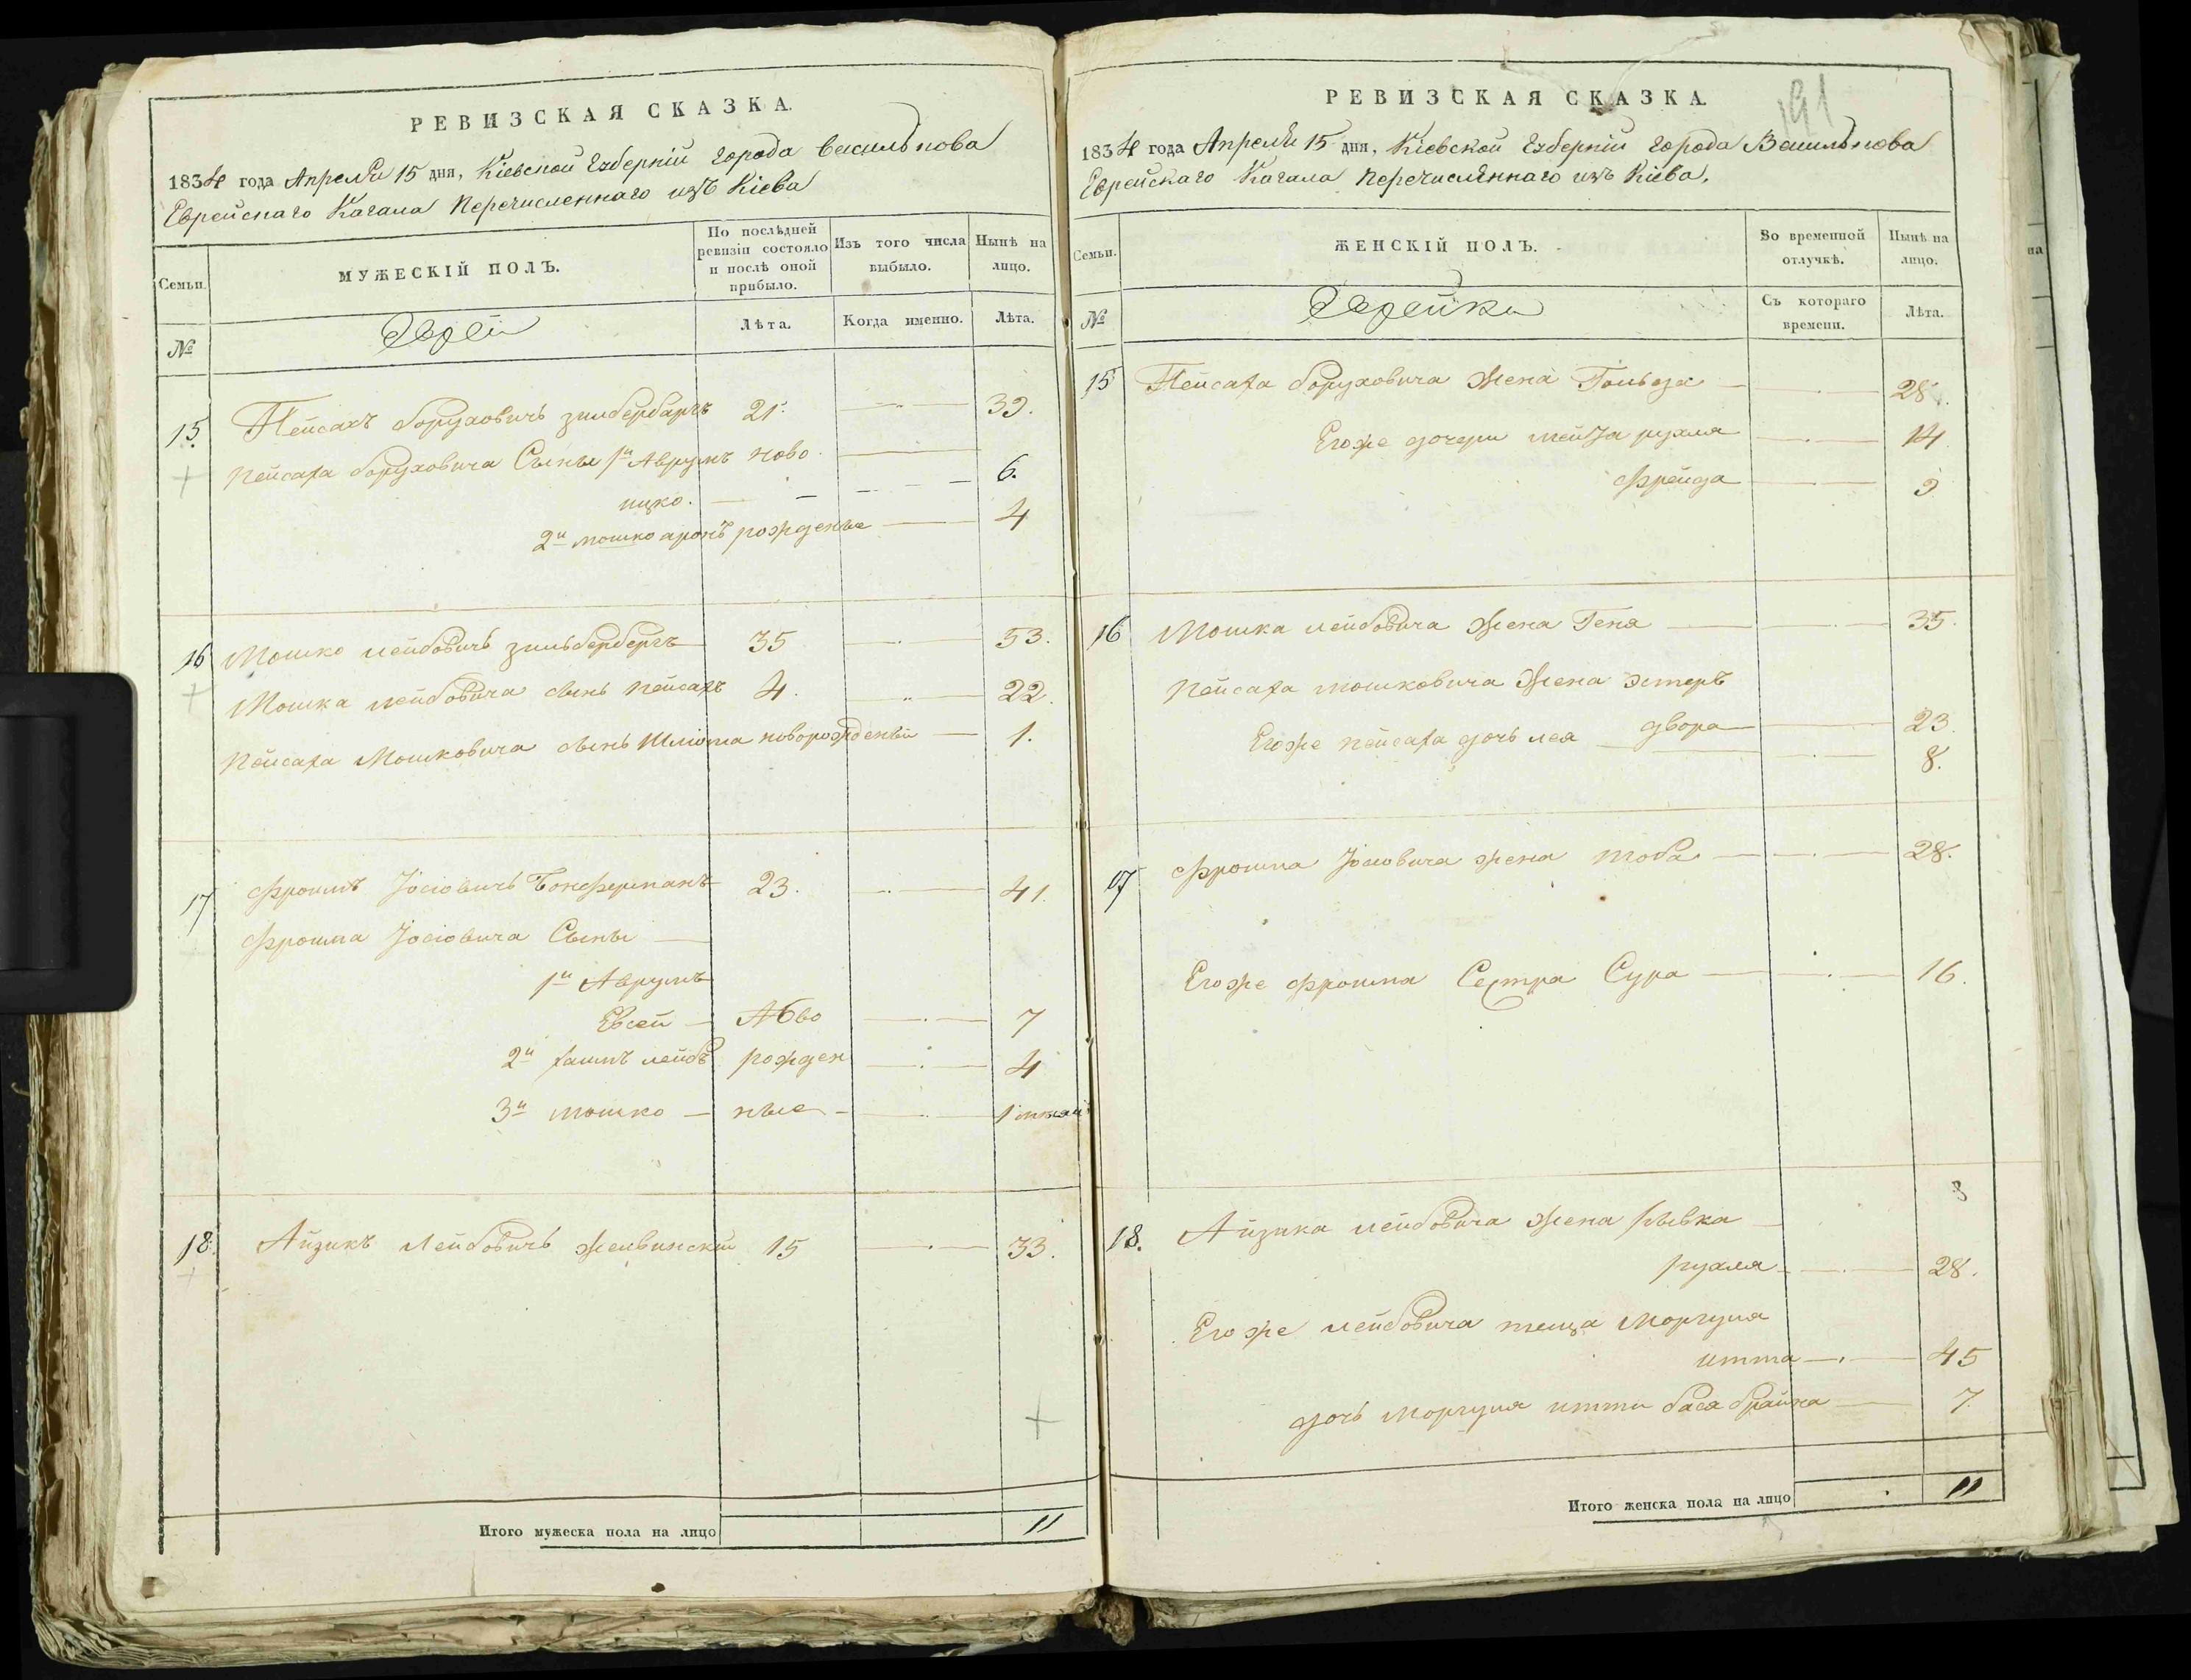 РЕВИЗСКАЯ СКАЗКА.
1834 года Апреля 15 дня, Кіевской Губерніи города Василькова
Еврейскаго Кагала перечисленнаго изъ Кіева
Семьи.
МУЖЕСКІЙ ПОЛЪ.
По послѣдней ревизіи состояло и послѣ оной прибыло.
Изъ того числа выбыло.
Нынѣ на лицо.
№
Евреи
Лѣта.
Когда именно.
Лѣта.
15. Пейсахъ борухοвичъ зилбербаргъ 21. 39.
Пейсаха боруховича Сыны 1й Аврумъ ново
ицко. 6.
2й мошко аронъ рожденые 4
16 Мошко лейбовичъ зильбербергъ 35 53.
Мошка лейбовича сынъ пейсахъ 4. 22.
Пейсаха Мошковича сынъ Шліома новорожденый 1.
17 Фроимъ Іосіовичъ Бонферманъ 23. 41.
Фроима Іосіовича Сыны
1й Аврумъ
Евсей Ново 7
2й хаимъ лейбъ рожден 4
3й мошко ные 1
18. Айзикъ Лейбовичъ желвинскій 15 33.
Итого мужеска пола на лицо 11
191
РЕВИЗСКАЯ СКАЗКА.
1834 года Апреля 15 дня, Кіевской Губерніи города Василькова
Еврейскаго Кагала перечисленнаго изъ Кіева.
Семьи.
ЖЕНСКІЙ ПОЛЪ.
Во временной отлучкѣ.
Нынѣ на лицо.
№
Еврейки
Съ котораго времени.
Лѣта.
15 Пейсаха боруховича жена Гольда 28.
Егоже дочери нейха рухля 14
Фрейда 9
16 Мошка лейбовича жена Геня 35.
Пейсаха мошковича жена эстеръ
двора 23.
Егоже пейсаха дочь лея 8.
17 Фроима Іосіовича жена тоба 28.
Егоже фроима Сестра Сура 16.
3
18. Айзика лейбовича жена рывка
рухля 28.
Егоже лейбовича теща Моргуля
итта 45
дочь моргуля итти бася брайна 7.
Итого женска пола на лицо 11